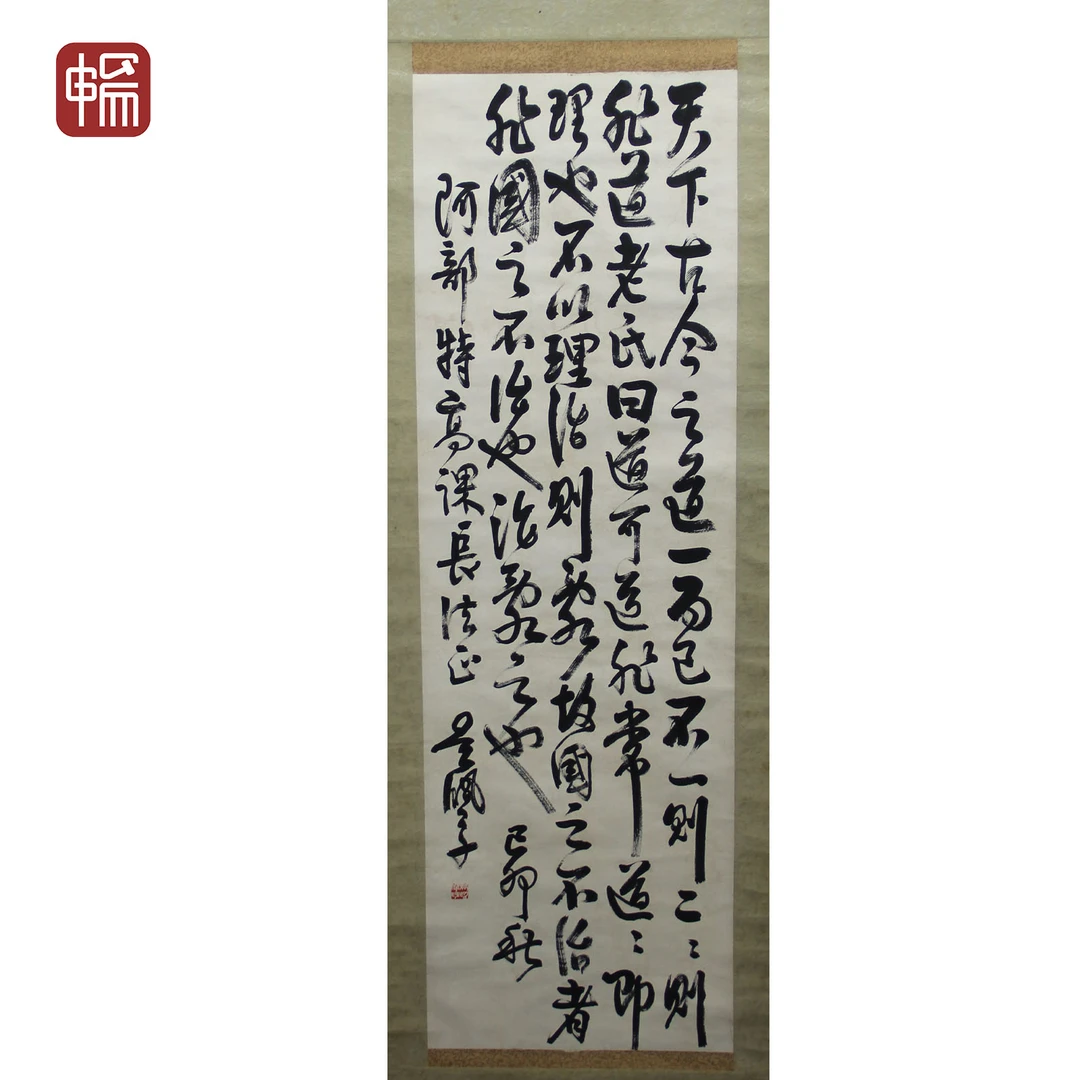 天下古今之道一而已不一則二〻則
非道老氏曰道可道非常道〻即
理也不以理治則亂故國之不治者
非國之不治也治亂之也 己卯秋
阿部特高課長法正 吳佩孚